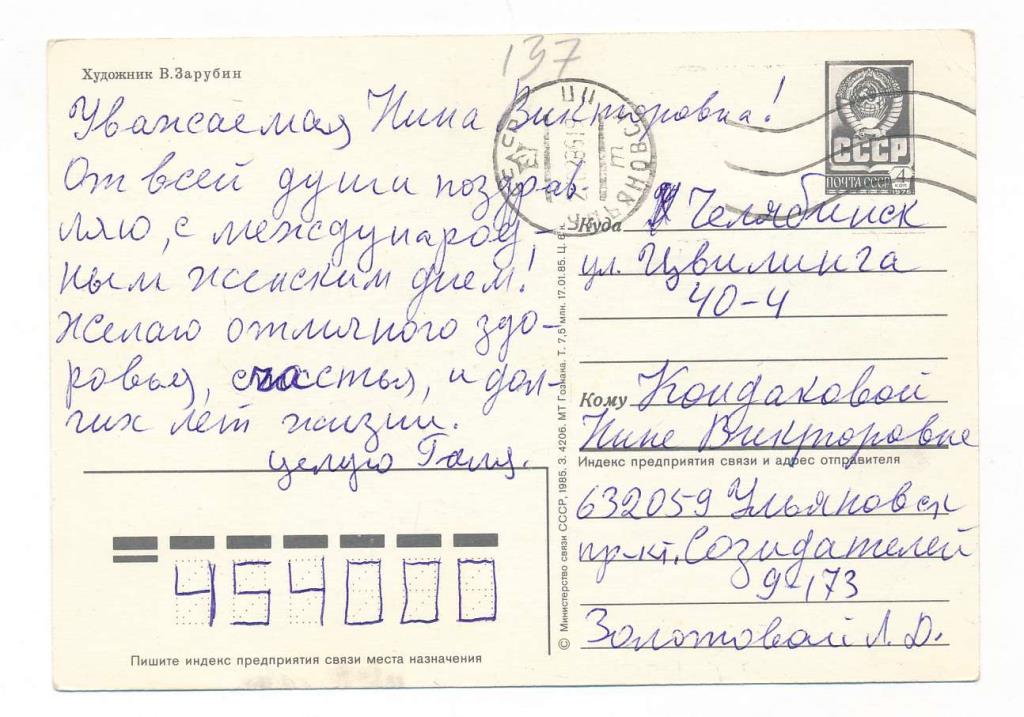 137
Художник В.Зарубин
Уважаемая Нина Викторовна!
От всей души поздрав-
ляю, с международ-
ным женским днем!
Желаю отличного здо-
ровья, счастья, и дол-
гих лет жизни.
целую Галя.
СССР
ПОЧТА СССР
4 коп
1976
Куда Челябинск
ул. Цвилинга
40-4
Кому Кондаковой
Нине Викторовне
Индекс предприятия связи и адрес отправителя
632059 Ульяновск
пр-кт. Созидателей
9-173
Золотовай Л. Д.
454000
Пишите индекс предприятия связи места назначения
© Министерство связи СССР, 1985. З. 4206. МТ Гознака. Т. 7,5 млн. 17.01.85. Ц. 6 к.